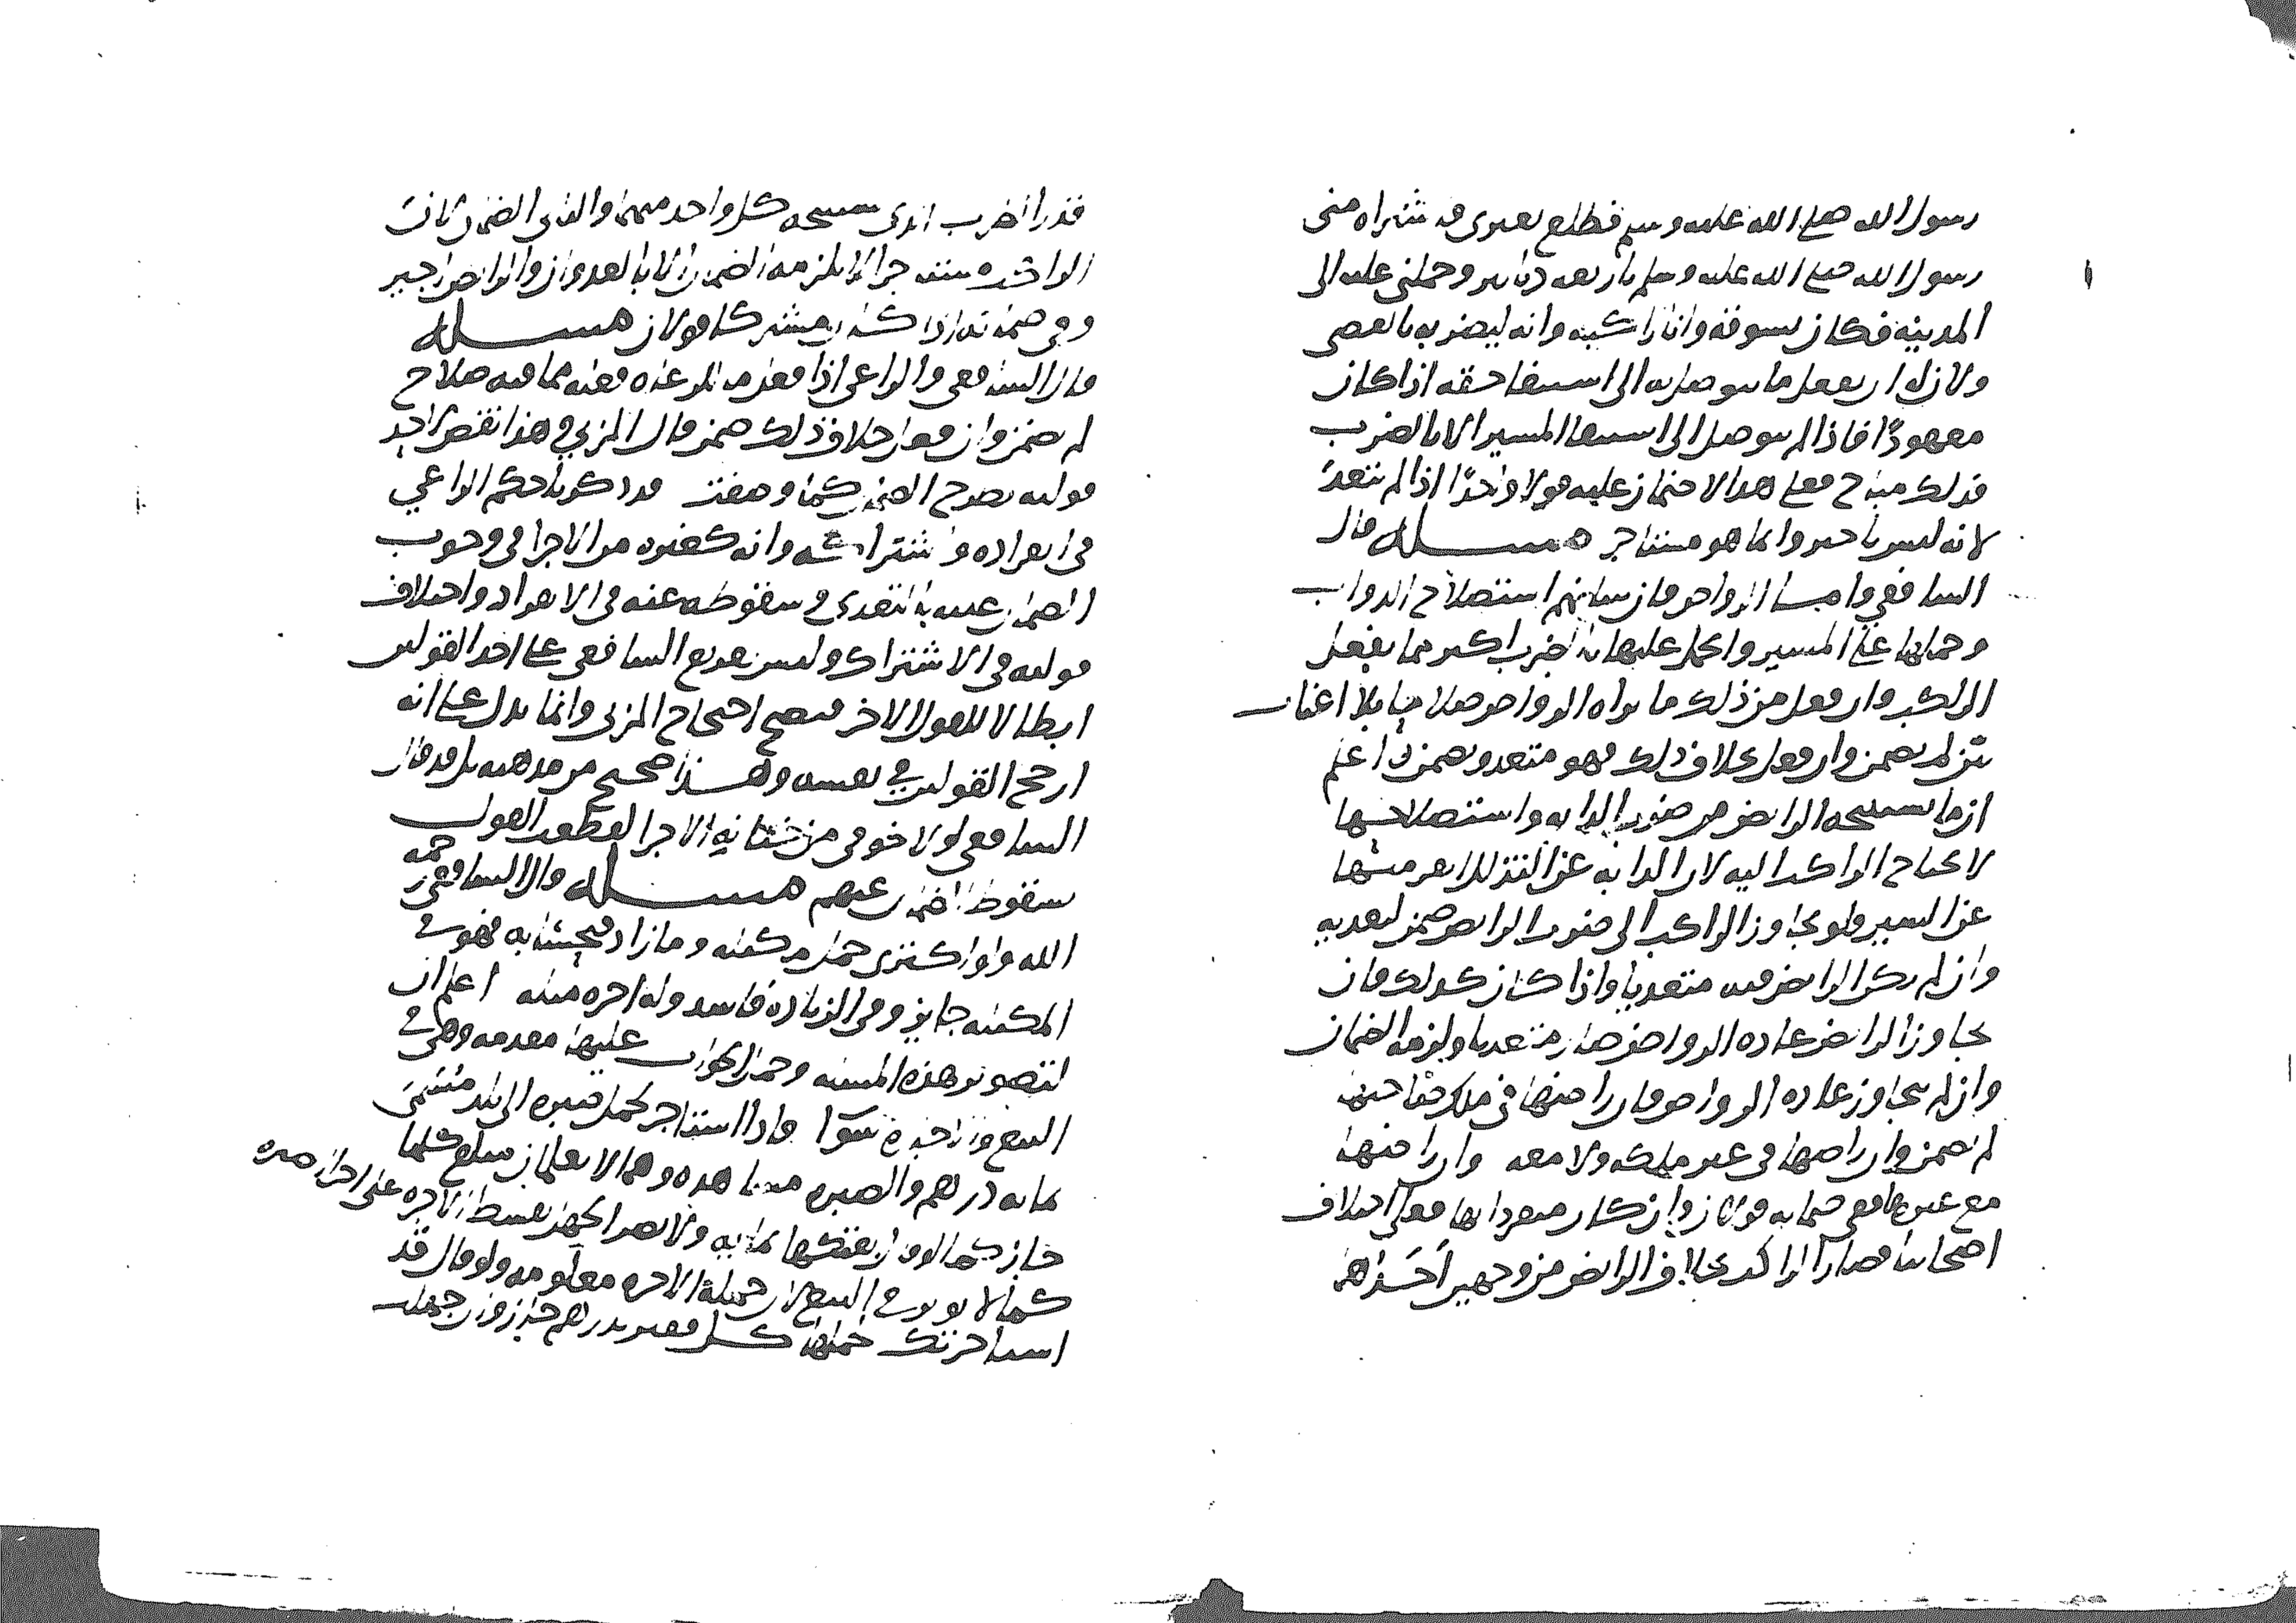 رسول الله صلى الله عليه وسلم فطلع بعيري فاشتراه مني
رسول الله صلى الله عليه وسلم باربعه دنانير وحملني عليه الى
المدينة فكان يسوقه وانا راكبه وانه ليضربه بالعصى
ولان له ان يفعل ما يتوصل به الى استيفا حقه اذا كان
معهودًا فاذا لم يتوصل الى استيفا المسير الا بالضرب
فذلك مباح فعلى هذا لا ضمان عليه قولا واحدًا اذا لم يتعد
لانه ليس باجير وانما هو مستاجر مسله قال
الشافعي واما الرواض فان شانهم استصلاح الدواب
وحملها على المسير والحمل عليها بالضرب اكثر مما يفعل
الراكب وان فعل من ذلك ما يراه الرواض صلاحا بلا اعنات
بين لم يضمن وان فعل خلاف ذلك فهو متعد ويضمن اعلم
ان ما يستبيحه الرايض من ضرب الدابه واستصلاحها
لا يحتاج الراكب اليه لان الدابه عند التذلل اقصر منها
عند السير ولو تجاوز الراكب الى ضرب الرايض ضمن لتعديه
وان لم يكن الرايض فيه متعديا واذا كان كذلك فان
تجاوز الرايض عاده الرواض صار متعديا ولزمه الضمان
وان لم يتجاوز عاده الرواض فان راضها في ملك صاحبها
لم يضمن وان راضها في غير ملكه ولا معه وان راضها
مع غيرها ففي ضمانه قولان وان كان منفردا بها فعلى اختلاف
اصحابنا فصار الراكب بخلاف الرايض من وجهين احدهما
قدر الضرب الذي يستبيحه كل واحد منهما والثاني الضمان لان
الراكب مستاجر لا يلزمه الضمان الا بالعدوان والرايض اجير
وفي ضمانه اذا كان مشتركا قولان مسله
قال الشافعي والراعي اذا فعل ما للرعاه فعله مما فيه صلاح
لم يضمن وان فعل خلاف ذلك ضمن قال المزني وهذا نقض لاحد
قوليه بطرح الضمان كما وصفت قد ذكرنا حكم الراعي
في انفراده واشتراكه وانه كغيره من الاجرا في وجوب
الضمان عليه بالتعدي وسقوطه عنه في الانفراد واختلاف
قوليه في الاشتراك وليس تفريع الشافعي على احد القولين
ابطالا للقول الاخر فيصح احتجاج المزني وانما يدل على انه
ارجح القولين في نفسه وهذا صحيح من مذهبه بل قد قال
الشافعي لولا خوفي من خيانه الاجرا لقطعت القول
بسقوط الضمان عنهم مسله قال الشافعي رحمه
الله ولو اكترى حمل مكيله وما زاد فبحسابه فهو في
المكيله جايز وفي الزياده فاسد وله اجره مثله اعلم ان
لتصوير هذه المسله وحمل الجواب عليها مقدمه وهي في
البيع والاجاره سوا واذا استاجر لحمل صبره الى بلد مسمى
بمايه درهم والصبره مشاهده وهما لا يعلمان مبلغ كيلها
جاز كما لو باعها بمايه ولا يضر الجهل بقسط الاجره على اجزا صبره
كما لا يوثر في البيع لان جمله الاجره معلومه ولو قال قد
استاجرتك لحملها كل قفيز بدرهم جاز وان جهلت